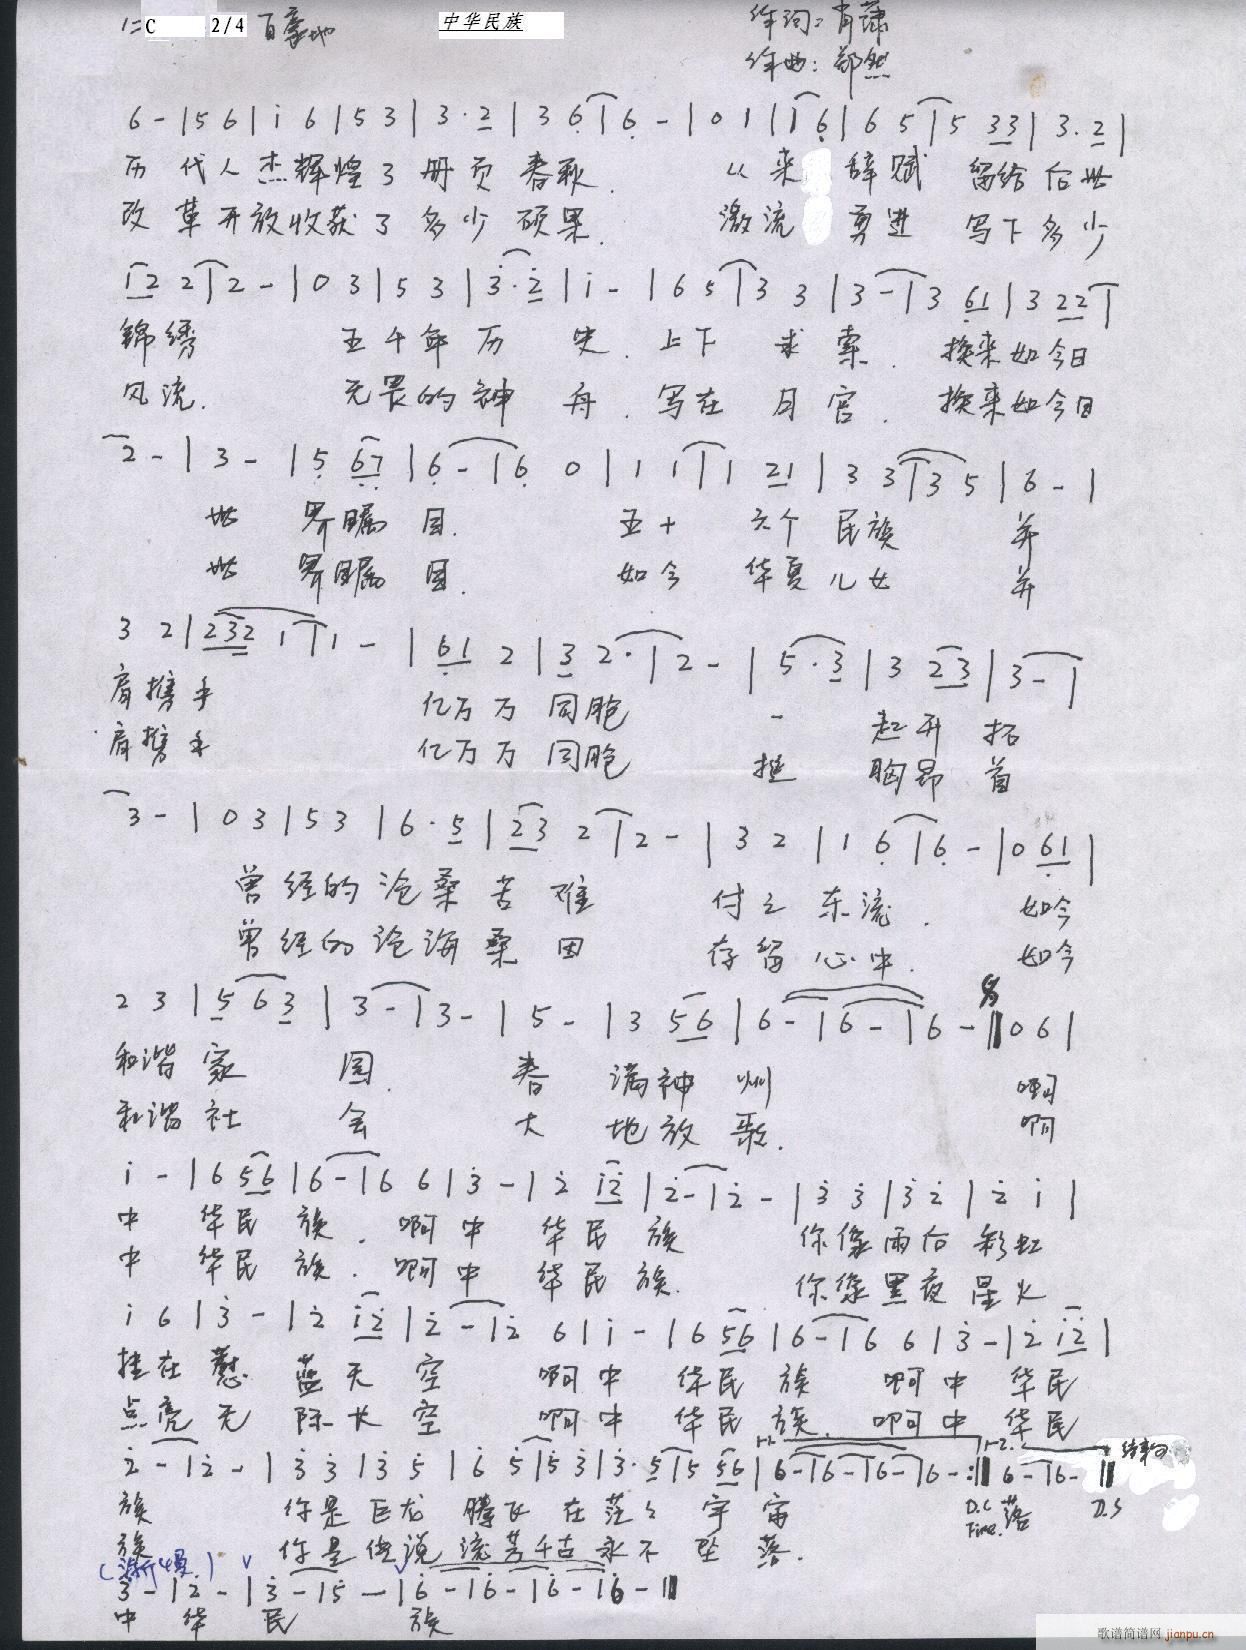 1=C 2/4 自豪地 中华民族 作词:肖萧
作曲:郑然
6 - | 5 6 | i 6 | 5 3 | 3 · 2 | 3 6 | 6 - | 0 1 | 1 6 | 6 5 | 5 3 3 | 3 . 2 |
历代人杰辉煌了册页春秋. 从来 辞赋 留给后世
改革开放收获了多少硕果. 激流 勇进 写下多少
1 2 2 | 2 - | 0 3 | 5 3 | 3 · 2 | i - | 6 5 | 3 3 | 3 - | 3 6 1 | 3 2 2 |
锦绣 五千年历 史. 上下 求索. 换来如今日
风流. 无畏的神 舟. 写在 月宫. 换来如今日
2 - | 3 - | 5 6 7 | 6 - | 6 0 | 1 1 | 1 2 1 | 3 3 | 3 5 | 6 - |
世 界瞩目. 五十 六个 民族 并
世 界瞩目. 如今 华夏儿女 并
3 2 | 2 3 2 1 | 1 - | 6 1 2 | 3 2 · | 2 - | 5 · 3 | 3 2 3 | 3 - |
肩携手 亿万万同胞 一 起开拓
肩携手 亿万万同胞 挺 胸昂首
3 - | 0 3 | 5 3 | 6 · 5 | 2 3 2 | 2 - | 3 2 | 1 6 | 6 - | 0 6 1 |
曾经的沧桑苦难 付之东流. 如今
曾经的沧海桑田 存留心中. 如今
2 3 | 5 6 3 | 3 - | 3 - | 5 - | 3 5 6 | 6 - | 6 - | 6 - || 0 6 |
和谐家 园. 春 满神州 啊
和谐社 会 大 地放歌. 啊
i - | 6 5 6 | 6 - | 6 6 | 3 - | 2 i 2 | 2 - | 2 - | 3 3 | 3 2 | 2 i |
中 华民族. 啊中 华民族 你像雨后彩虹
中 华民族. 啊中 华民族. 你像黑夜星火
i 6 | 3 - | 2 i 2 | 2 - | 2 6 | i - | 6 5 6 | 6 - | 6 6 | 3 - | 2 i 2 |
挂在 蓝天空 啊中 华民族 啊中 华民
点亮无 际长空 啊中 华民族. 啊中 华民
2 - | 2 - | 3 3 | 3 5 | 6 5 | 5 3 | 3 · 5 | 5 5 6 | 6 - | 6 - | 6 - | 6 - :|| 6 - | 6 - || 结束句
族 你是巨龙 腾飞在茫々宇宙 D.C 落 D.S
族 你是传说 流芳千古永不坠落. Fine.
(渐慢)
3 - | 2 - | 3 - | 5 - | 6 - | 6 - | 6 - | 6 - ||
中华民 族
歌谱简谱网 jianpu.cn